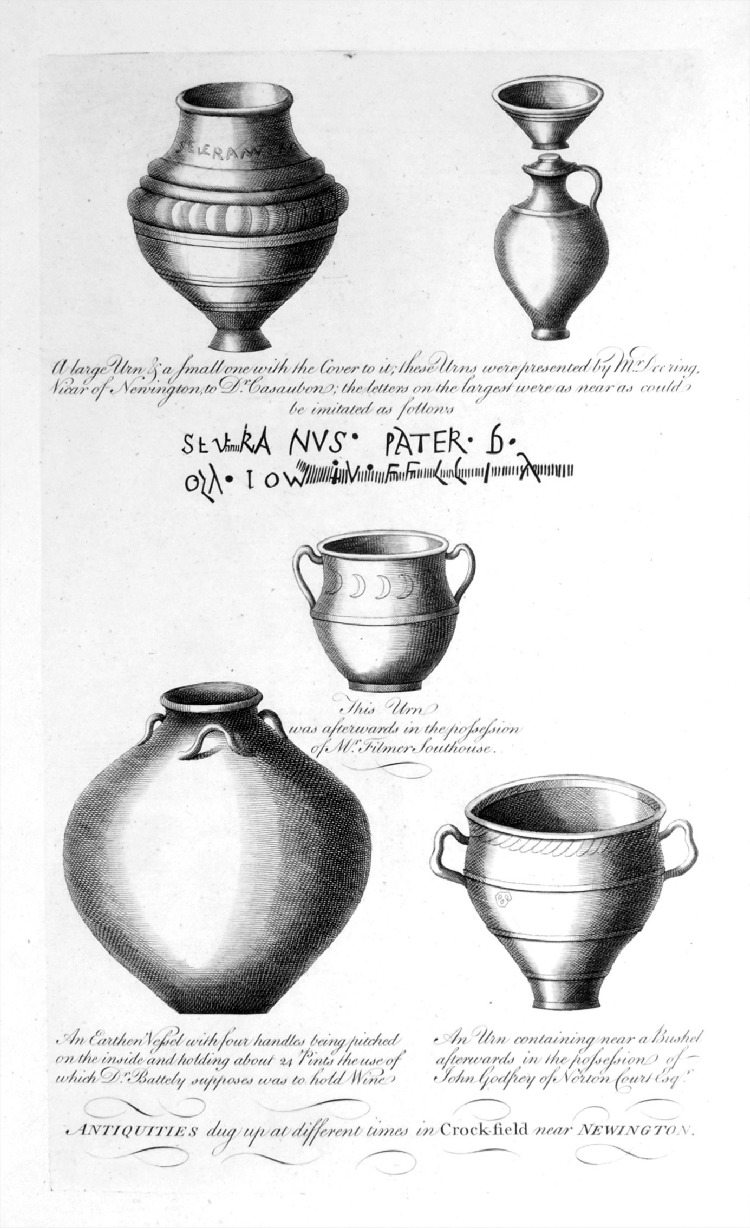 SEVERAM
A large Urn & a ſmall one with the Cover to it; theſe Urns were preſented by Mr. Deering,
Vicar of Newington, to Dr. Casaubon; the letters on the largest were as near as could
be imitated as follows
NVS· PATER·
This Urn
was afterwards in the poſseſsion
of Mr. Filmer Southouse.
An Earthen Veſsel with four handles being pitched
on the inside and holding about 24 Pints the use of
which Dr. Battely supposes was to hold Wine
An Urn containing near a Bushel
afterwards in the poſseſsion of
John Godfrey of Norton Court Esqr.
ANTIQUITIES dug up at different times in Crockfield near NEWINGTON.